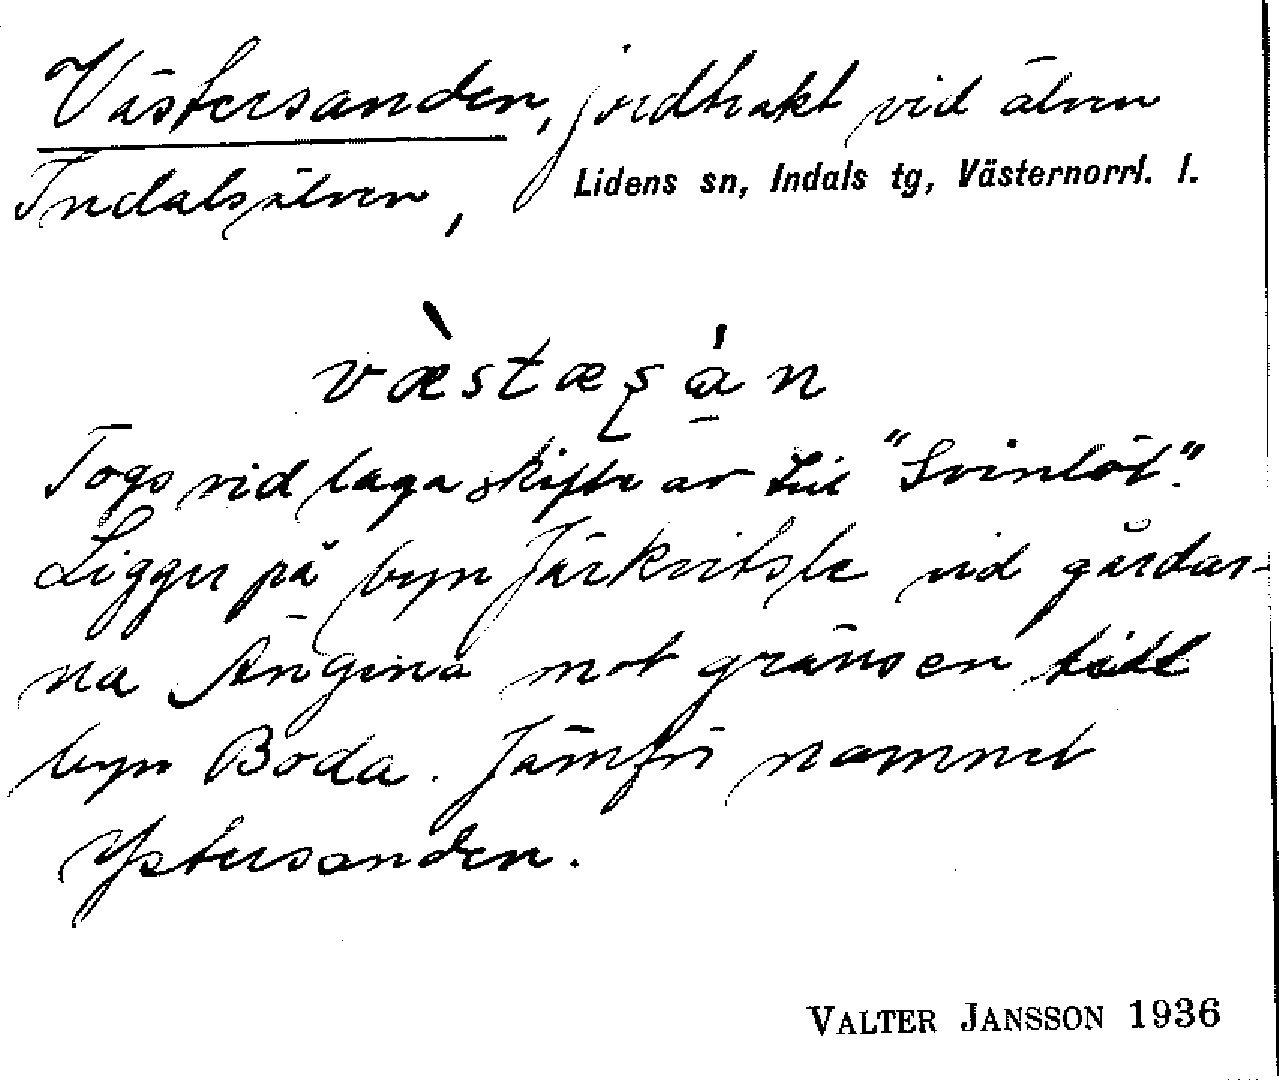 Västersanden, jordtrakt vid älven
Indalsälven, Lidens sn, Indals tg, Västernorrl. l.
væ̀stæʂa̱̍n
Togs vid laga skifte av till "Svinlöt".
Ligger på byn Järkvitsle vid gårdar-
na Ängena mot gränsen till
byn Boda. Jämför namnet
Ystersanden.
VALTER JANSSON 1936